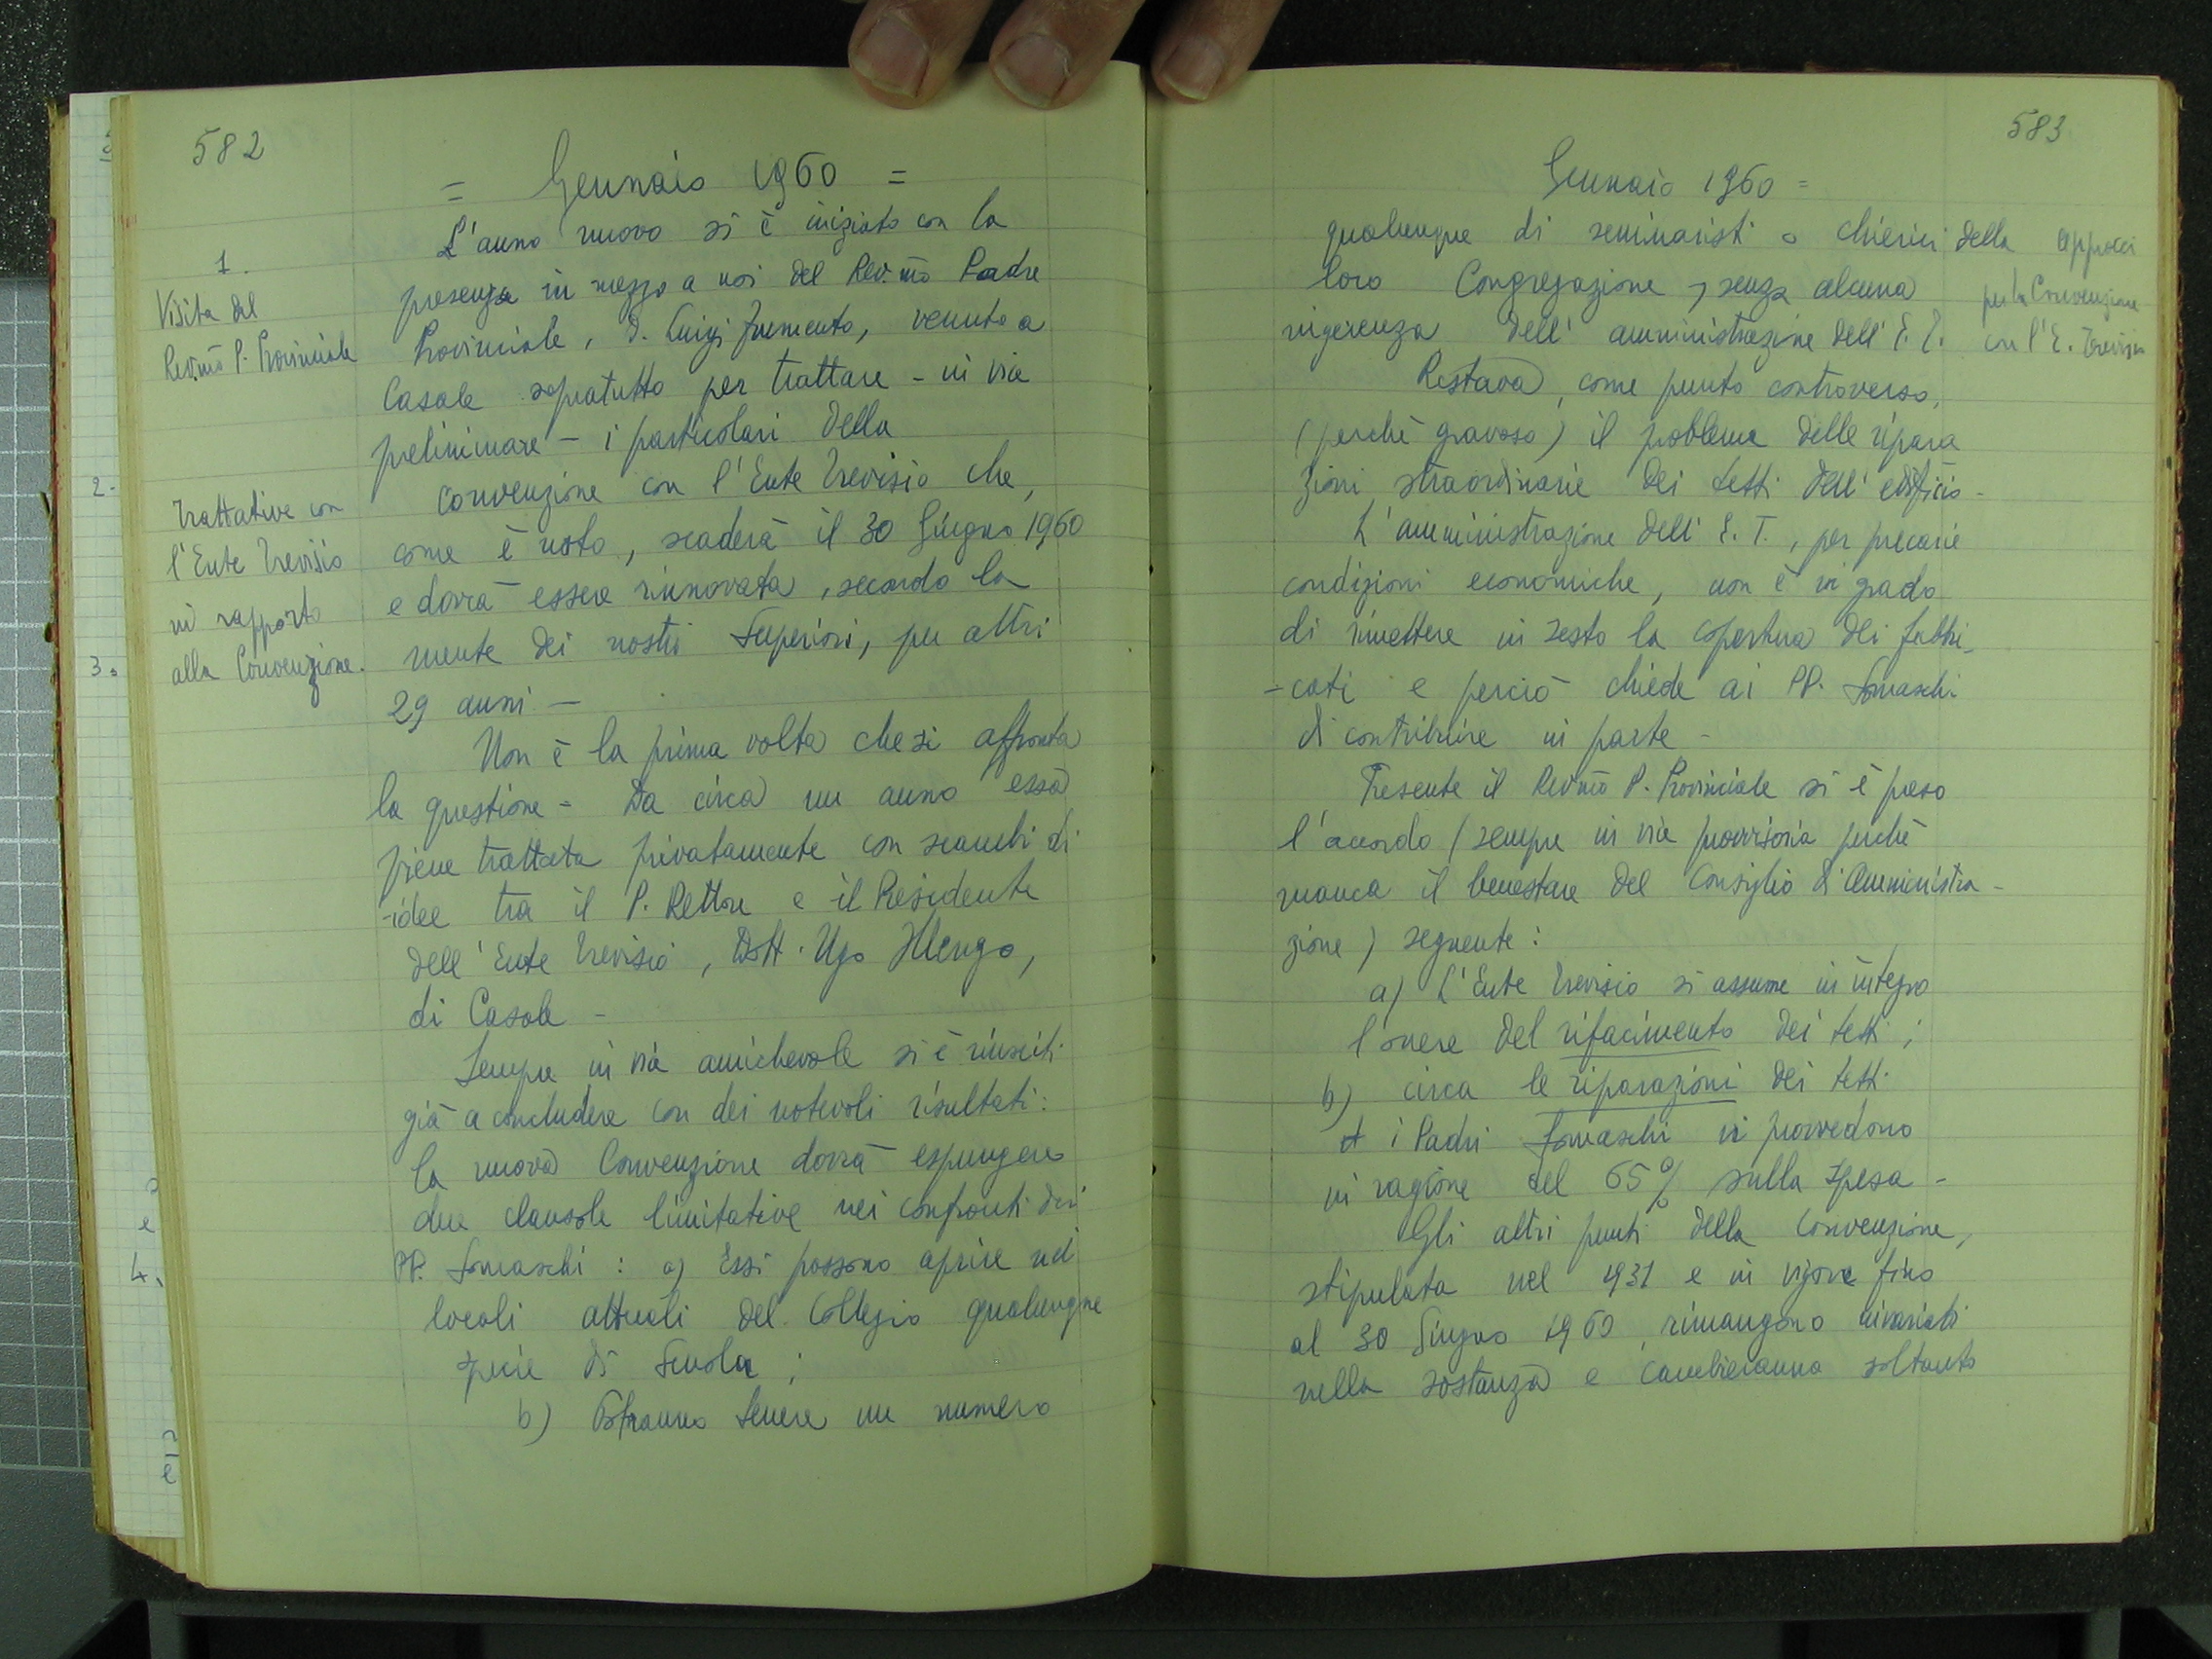 582
= Gennaio 1960 =
1.
Visita del
Rev.mo P. Provinciale
L'anno nuovo si è iniziato con la
presenza in mezzo a noi del Rev.mo Padre
Provinciale, P. Luigi Frumento, venuto a
Casale sopratutto per trattare - in via
preliminare - i particolari della
Trattative con
l'Ente Trevisio
in rapporto
alla Convenzione.
convenzione con l'Ente Trevisio che,
come è noto, scaderà il 30 Giugno 1960
e dovrà essere rinnovata, secondo la
mente dei nostri Superiori, per altri
29 anni -
Non è la prima volta che si affronta
la questione - Da circa un anno essa
viene trattata privatamente con scambi di
-idee tra il P. Rettore e il Presidente
dell'Ente Trevisio, Dott. Ugo
di Casale -
Sempre in via amichevole si è riusciti
già a concludere con dei notevoli risultati:
la nuova Convenzione dovrà espungere
due clausole limitative nei confronti dei
PP. Somaschi : a) Essi possono aprire nei
locali attuali del Collegio qualunque
specie di Scuola ;
b) Potranno tenere un numero
2.
3.
e
4.
e
583
Gennaio 1960 =
qualunque di seminaristi o chierici della
loro Congregazione, senza alcuna
ingerenza dell'amministrazione dell'E.T.
Approcci
per la Convenzione
con l'E. Trevisio
Restava, come punto controverso,
(perchè gravoso) il problema delle ripara
zioni straordinarie dei tetti dell'edificio -
L'amministrazione dell'E. T., per precarie
condizioni economiche, non è in grado
di rimettere in sesto la copertura dei fabbri-
-cati e perciò chiede ai PP. Somaschi
di contribuire in parte -
Presente il Rev.mo P. Provinciale si è preso
l'accordo (sempre in via provvisoria perchè
manca il benestare del Consiglio di Amministra-
zione) seguente :
a) L'Ente Trevisio si assume in integro
l'onere del rifacimento dei tetti ;
b) circa le riparazioni dei tetti
i Padri Somaschi vi provvedono
in ragione del 65% sulla spesa -
Gli altri punti della Convenzione,
stipulata nel 1931 e in vigore fino
al 30 Giugno 1960, rimangono invariati
nella sostanza e cambieranno soltanto